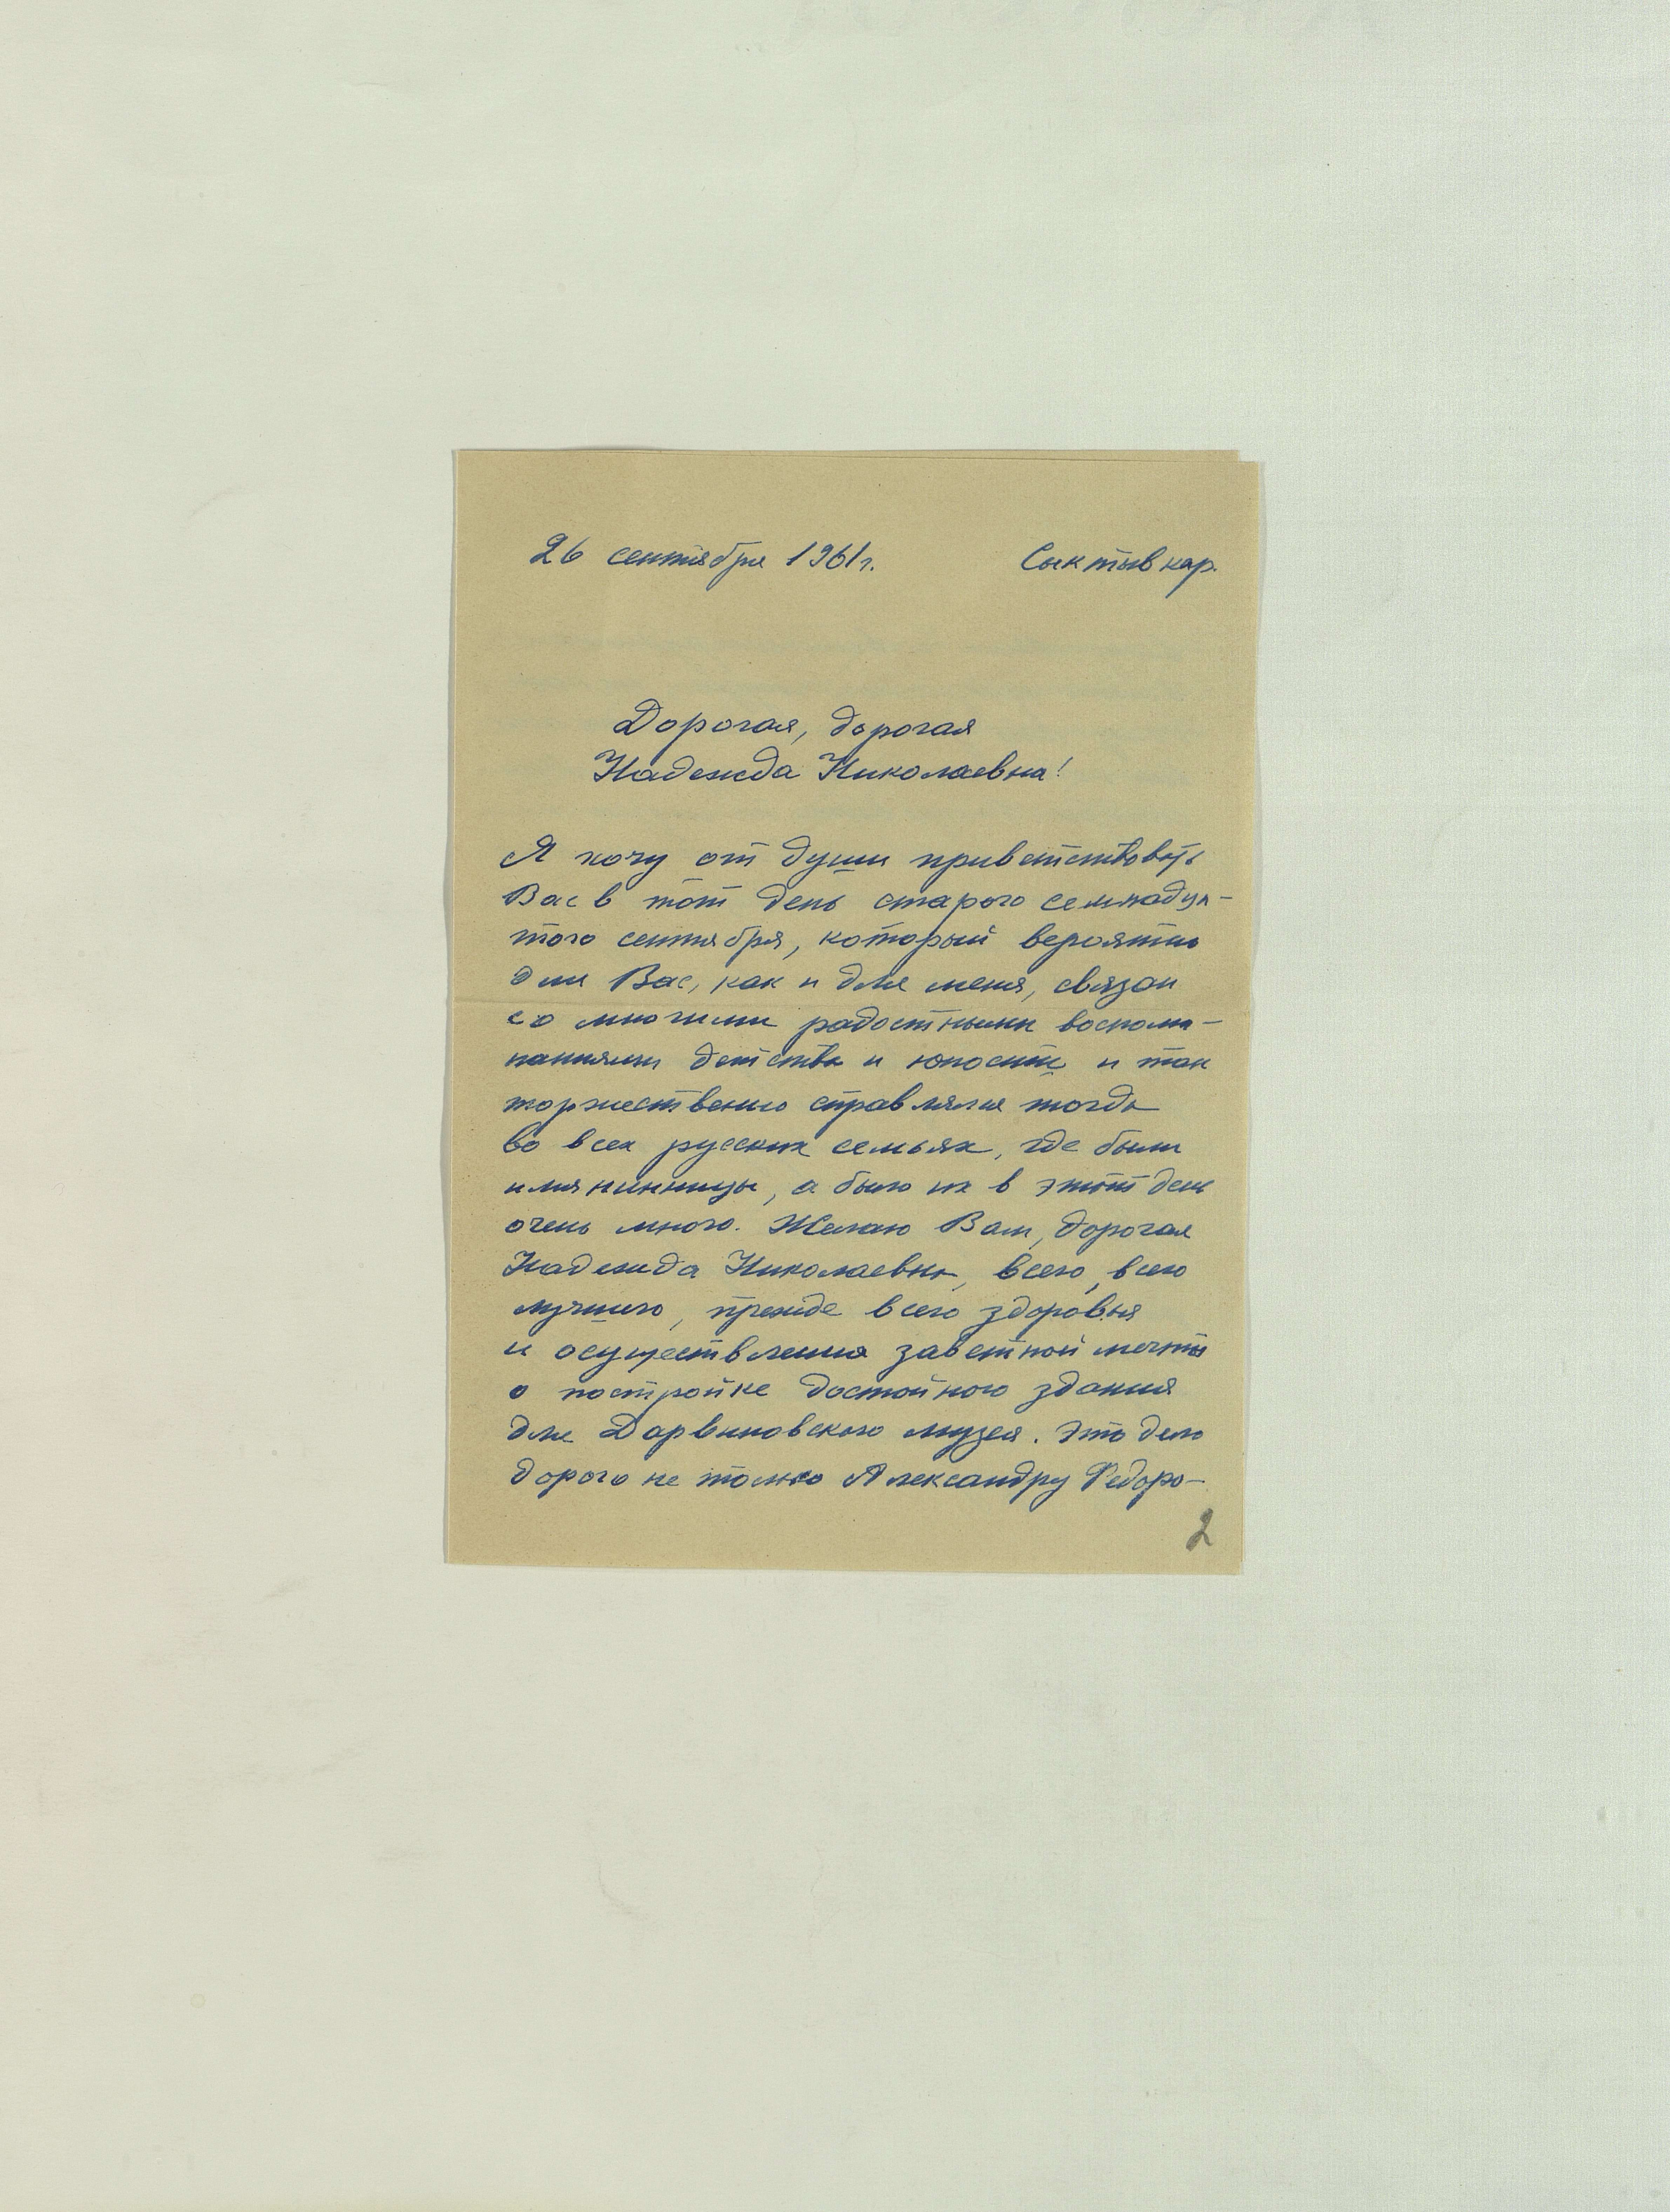 26 сентября 1961г. Сыктывкар.
Дорогая, дорогая
Надежда Николаевна!
Я хочу от души приветствовать
Вас в тот день старого семнадца-
того сентября, который вероятно
для Вас, как и для меня, связан
со многими радостными воспоми-
наниями детства и юности и так
торжественно справлялся тогда
во всех русских семьях, где были
имянинницы, а было их в этот день
очень много. Желаю Вам, дорогая
Надежда Николаевна, всего, всего
лучшего, прежде всего здоровья
и осуществления заветной мечты
о постройке достойного здания
для Дарвиновского музея. Это дело
дорого не только Александру Федоро-
2